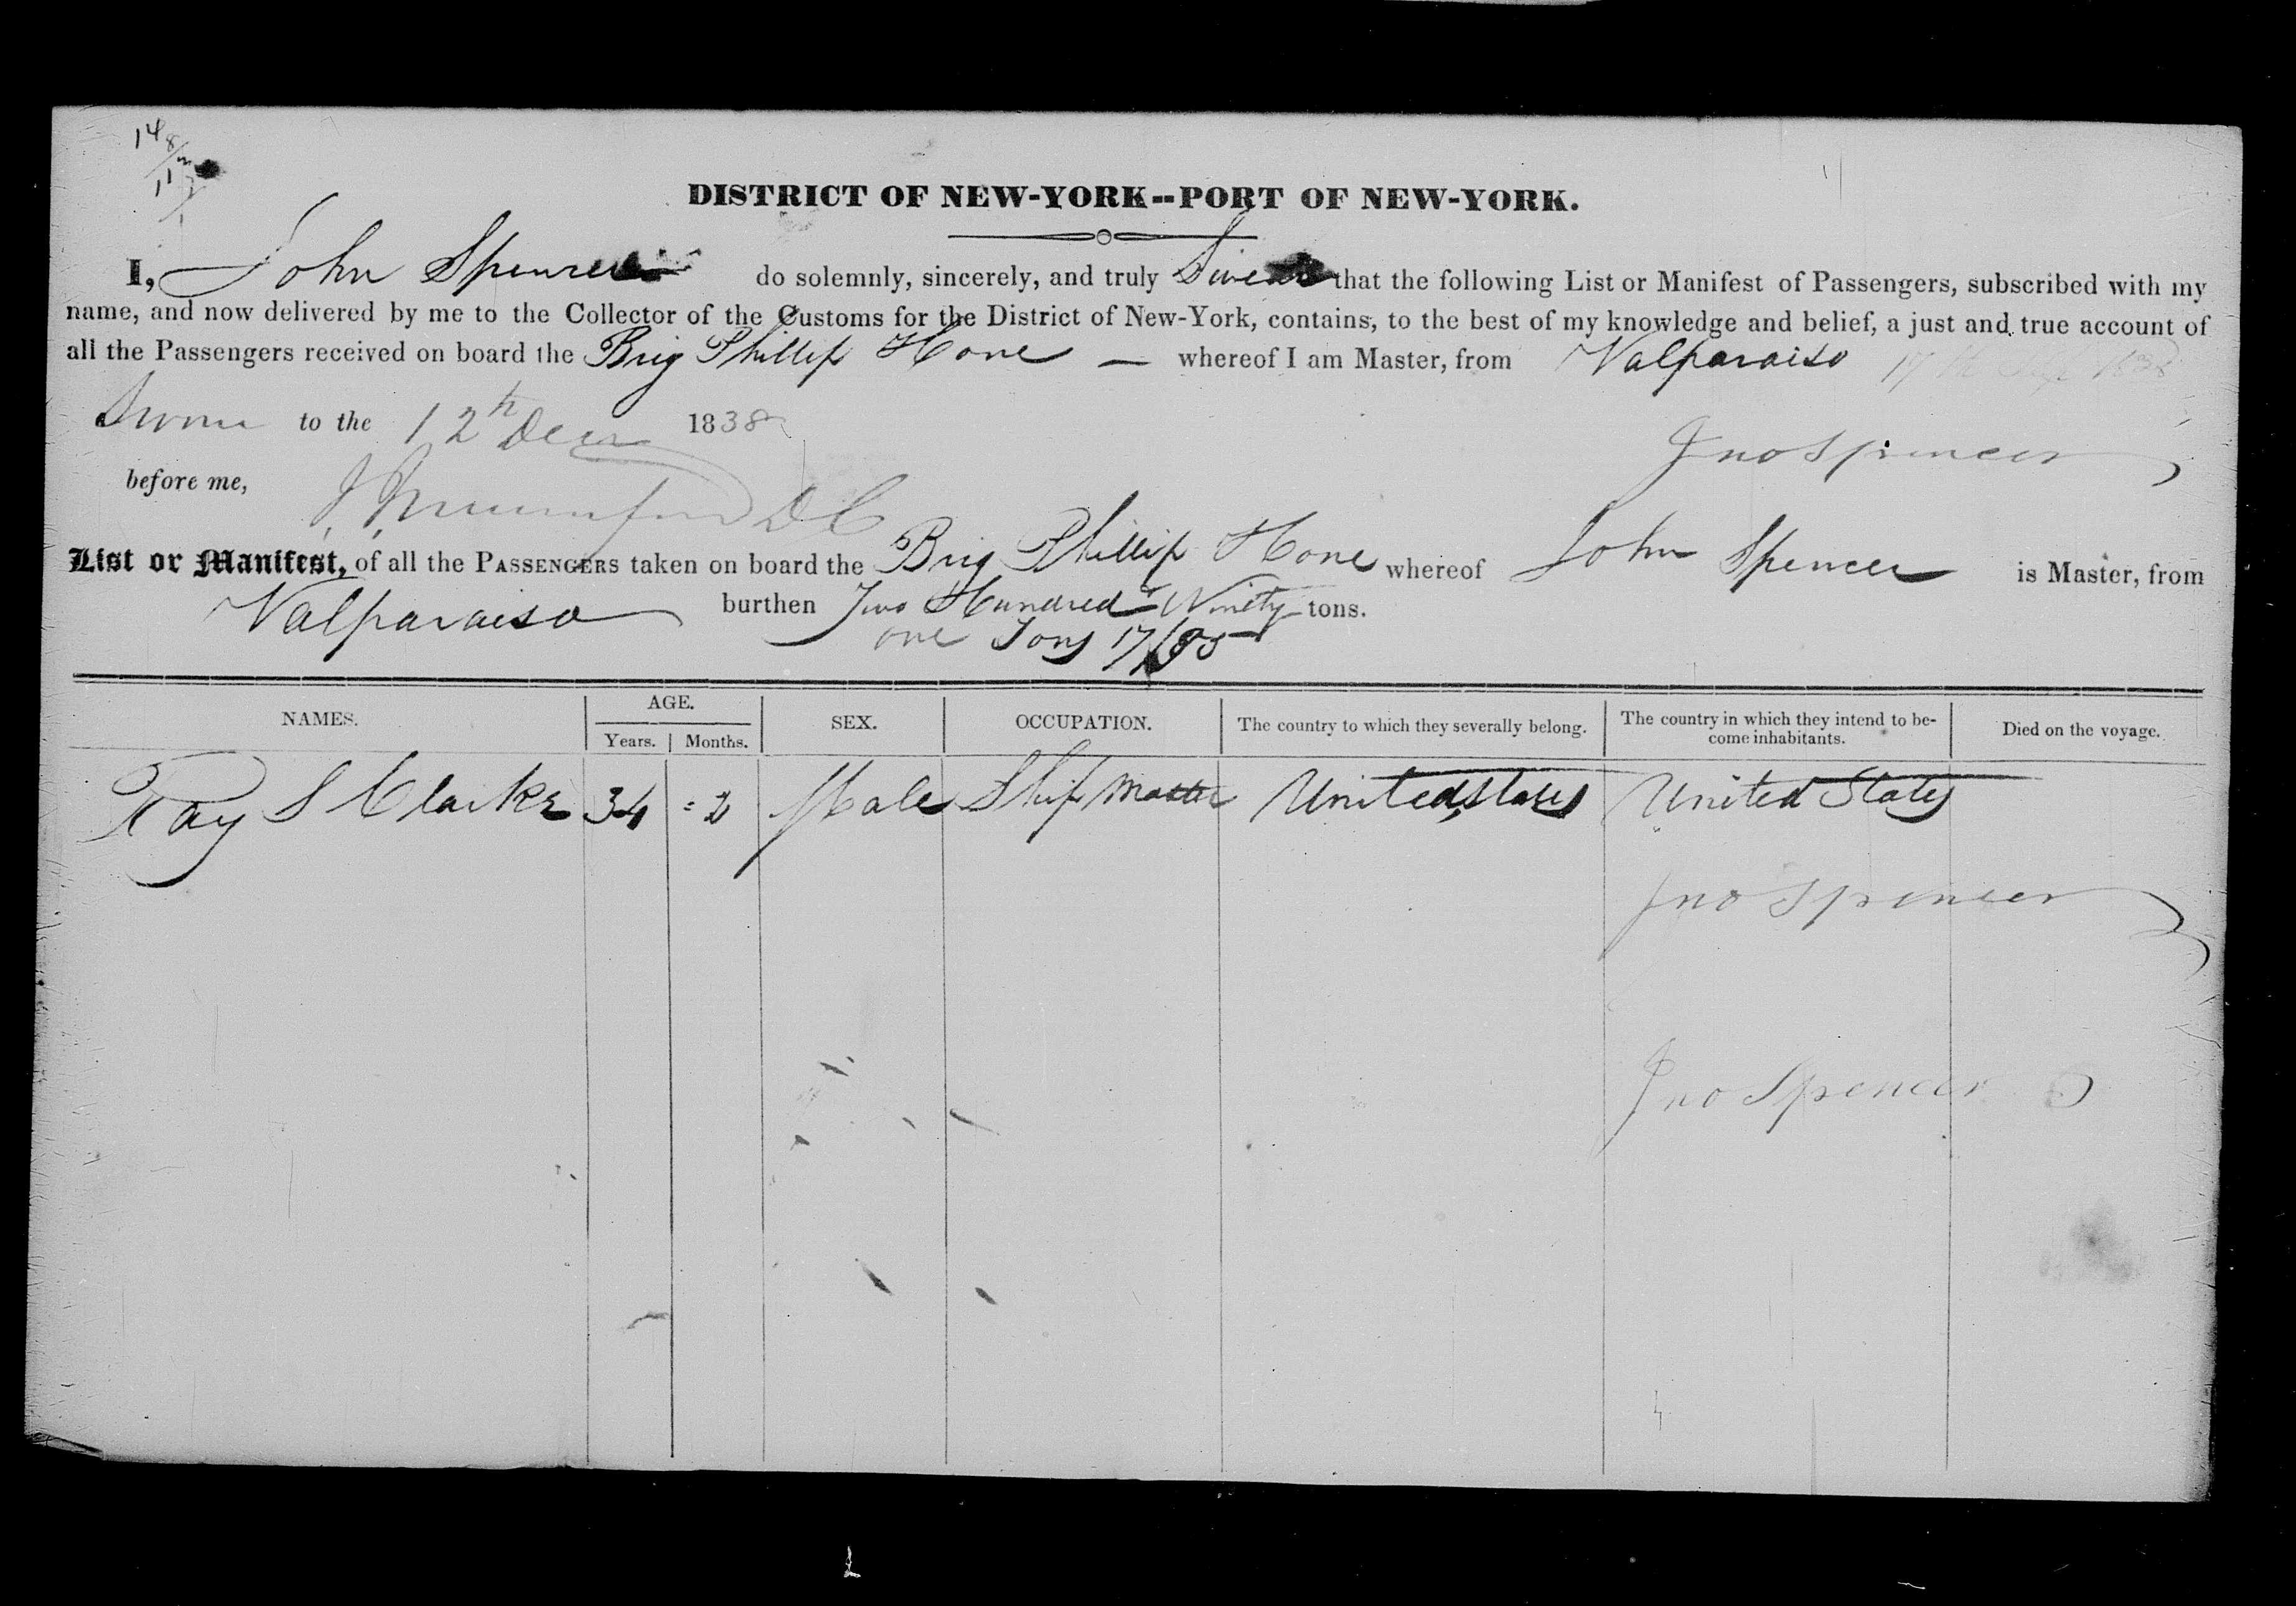 148
DISTRICT OF NEW-YORK--PORT OF NEW-YORK.
I, John Spencer do solemnly, sincerely, and truly Swear that the following List or Manifest of Passengers, subscribed with my
name, and now delivered by me to the Collector of the Customs for the District of New-York, contains, to the best of my knowledge and belief, a just and true account of
all the Passengers received on board the Brig Phillip Hone — whereof I am Master, from Valparaiso 17th 1838
Sworn to the 12th Decr 1838
Jno Spencer
before me, J Mumford DC
List or Manifest, of all the PASSENGERS taken on board the Brig Phillip Hone whereof John Spencer is Master, from
Valparaiso burthen Two Hundred Ninety tons.
one Tons 17/95
NAMES. AGE. SEX. OCCUPATION. The country to which they severally belong. The country in which they intend to be- Died on the voyage.
Years. Months. come inhabitants.
Ray S Clarke 34 = 2 Male Ship Master United States United States
Jno Spencer
Jno Spencer